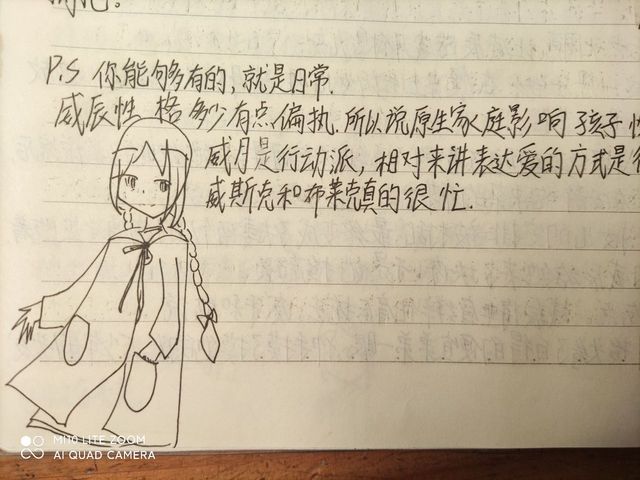 P.S 你能够有的,就是日常.
威辰性格多少有点偏执.所以说原生家庭影响孩子性
威月是行动派,相对来讲表达爱的方式是行
威斯克和布莱克真的很忙.
MI 10 LITE ZOOM
AI QUAD CAMERA